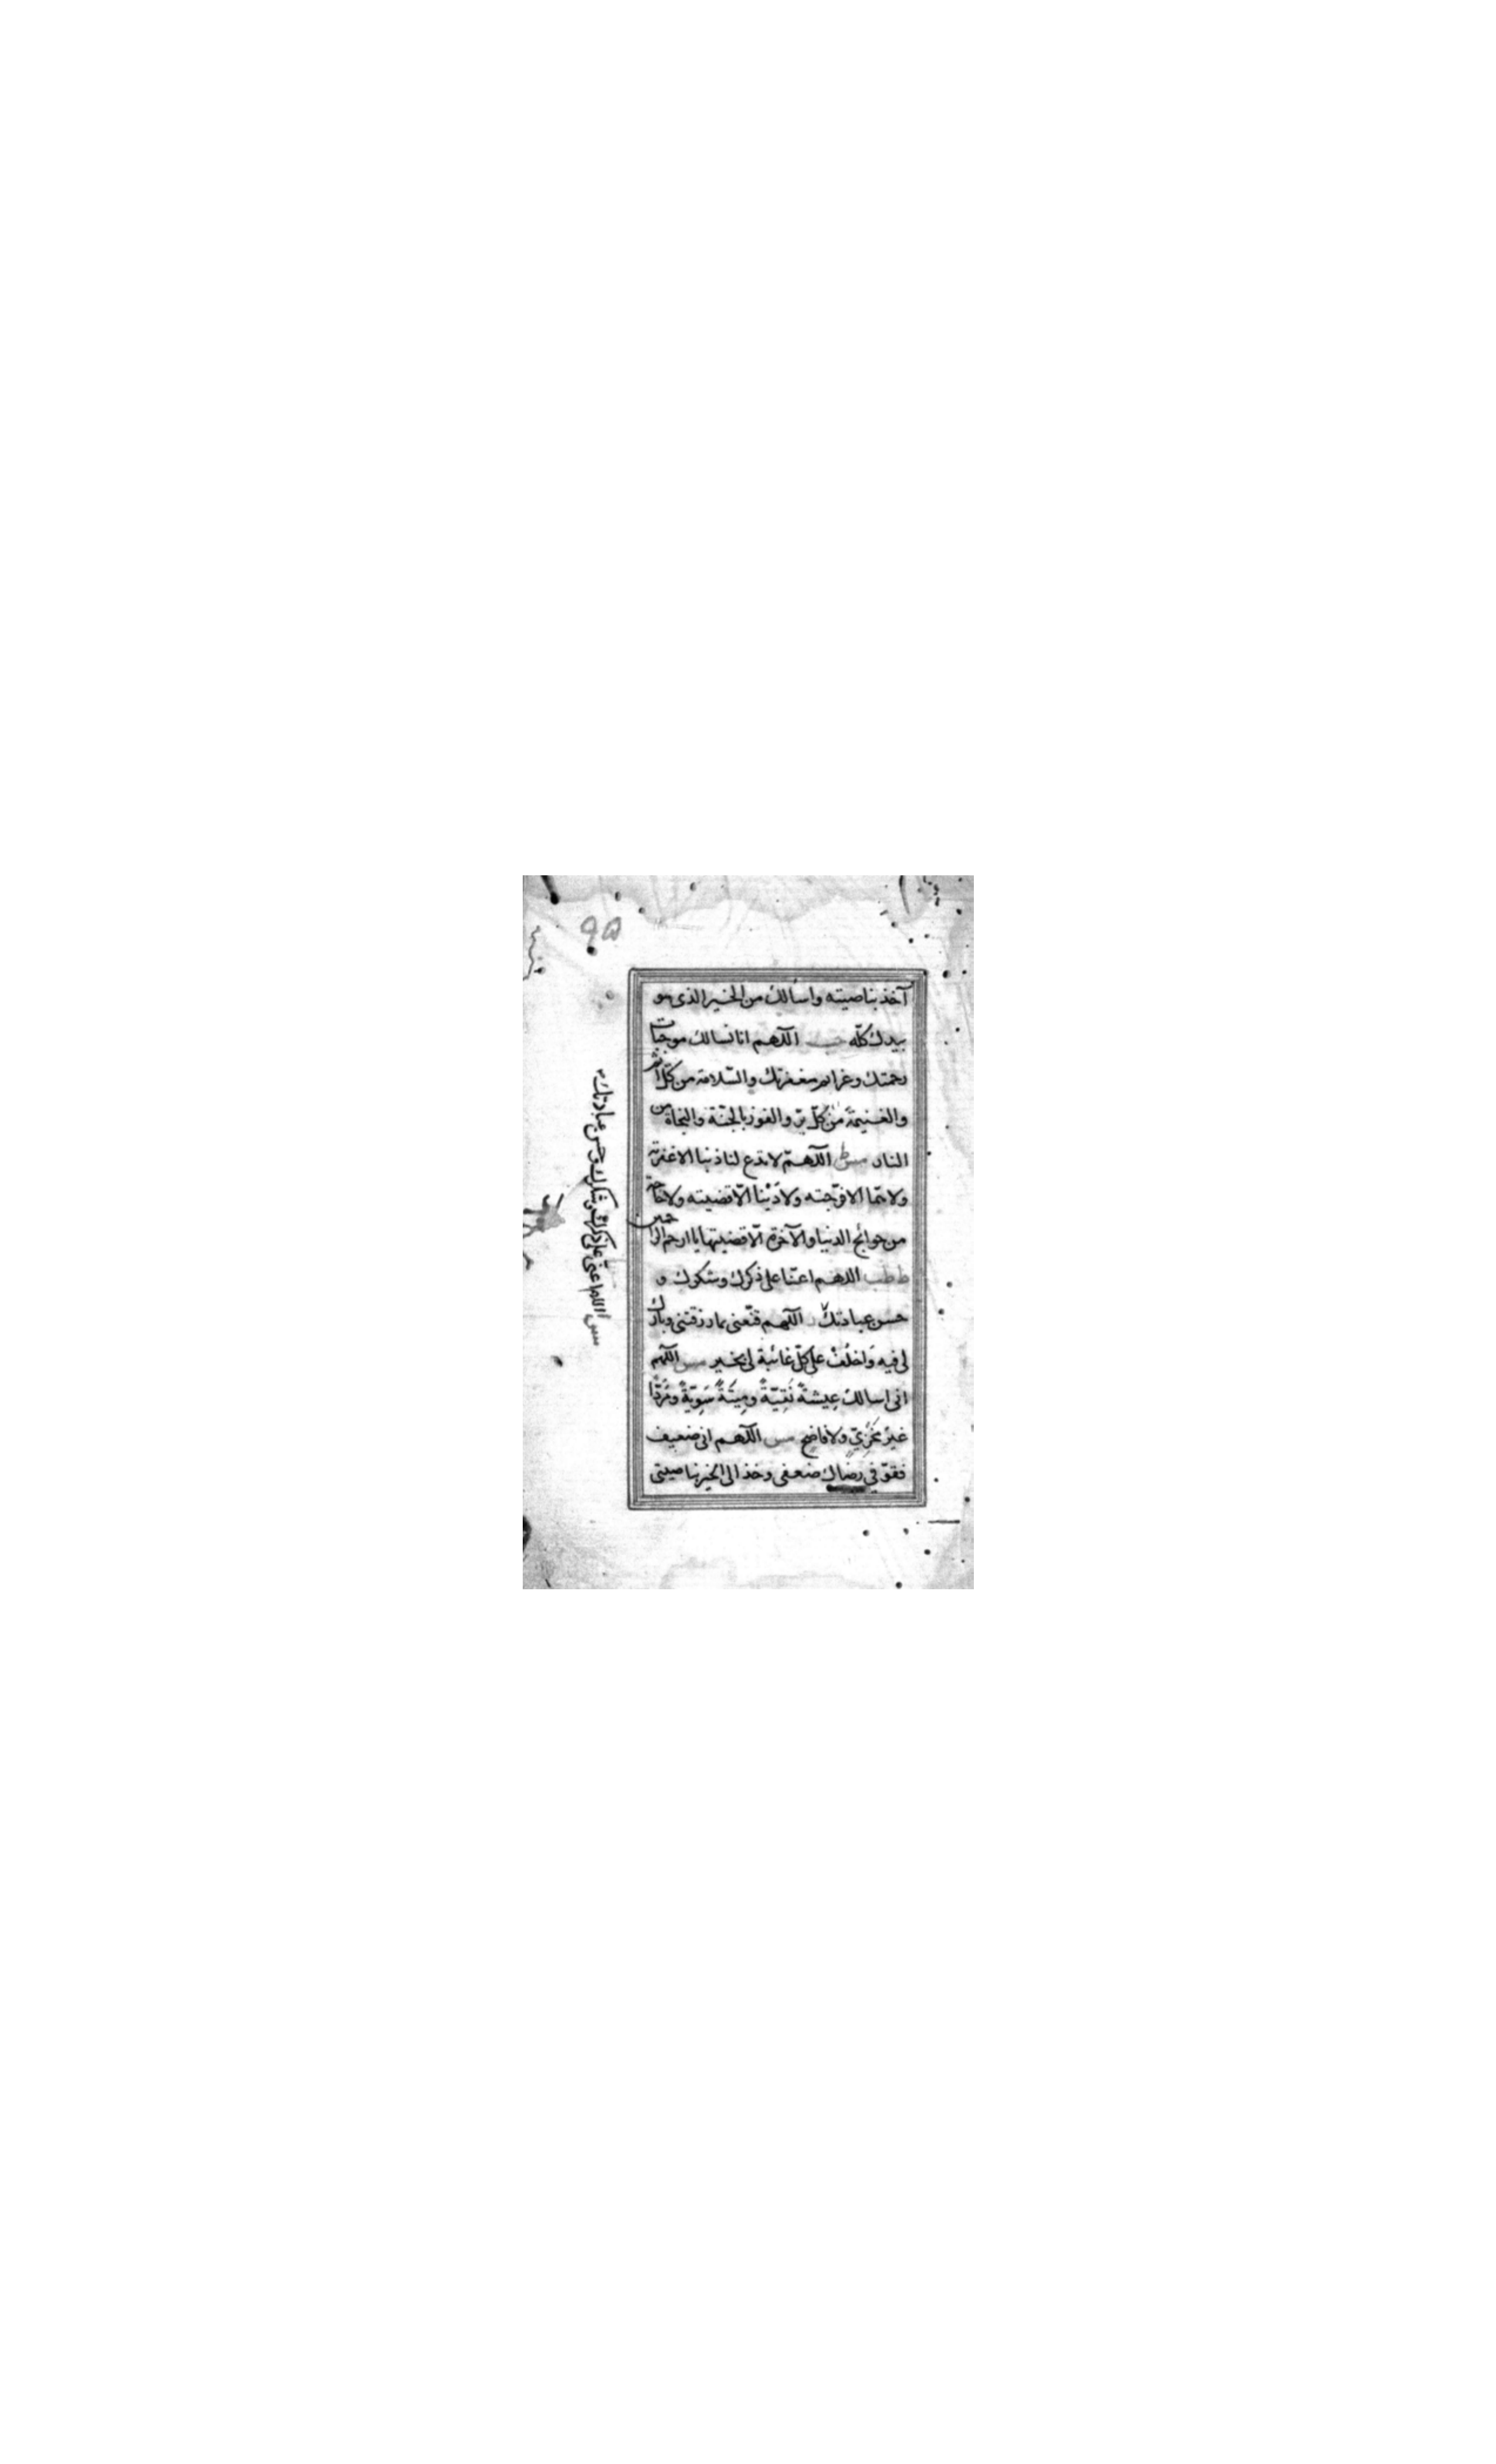 ٩٥
آخذ بناصيته واسألك من الخير الذى هو
بيدك كلّه حب اللهم انا نسالك موجبات
رحمتك وعزائم مغفرتك والسّلامة من كلّ اثم
والغنيمةَ من كلّ برّ والفوز بالجنّة والنجاة من
النار مس ط اللهمّ لا تدع لنا ذنبا الا غفرته
ولا همّا الا فرّجته ولا دَيْنا الّا قضيته ولا حاجة
من حوائج الدنيا والآخرة الّا قضيتها يا ارحم الراحمين
ط طب اللهم اعنّا على ذكرك وشكرك و
حسن عبادتك ر اللهم قنّعنى بما رزقتنى وبارك
لى فيه وَاخلُفْ على كلّ غائبة لى بخير مس اللهم
انى اسالك عِيشةً نَقِيّةً ومِيتَةً سَوِيّةً ومَرَدًّا
غيرَ مُخْزِيٍّ ولا فاضحٍ مس اللهم انى ضعيف
فقوّ فى رضاك ضعفى وخذ الى الخير بناصيتى
مس اللهم اعنى على ذكرك وشكرك وحسن عبادتك